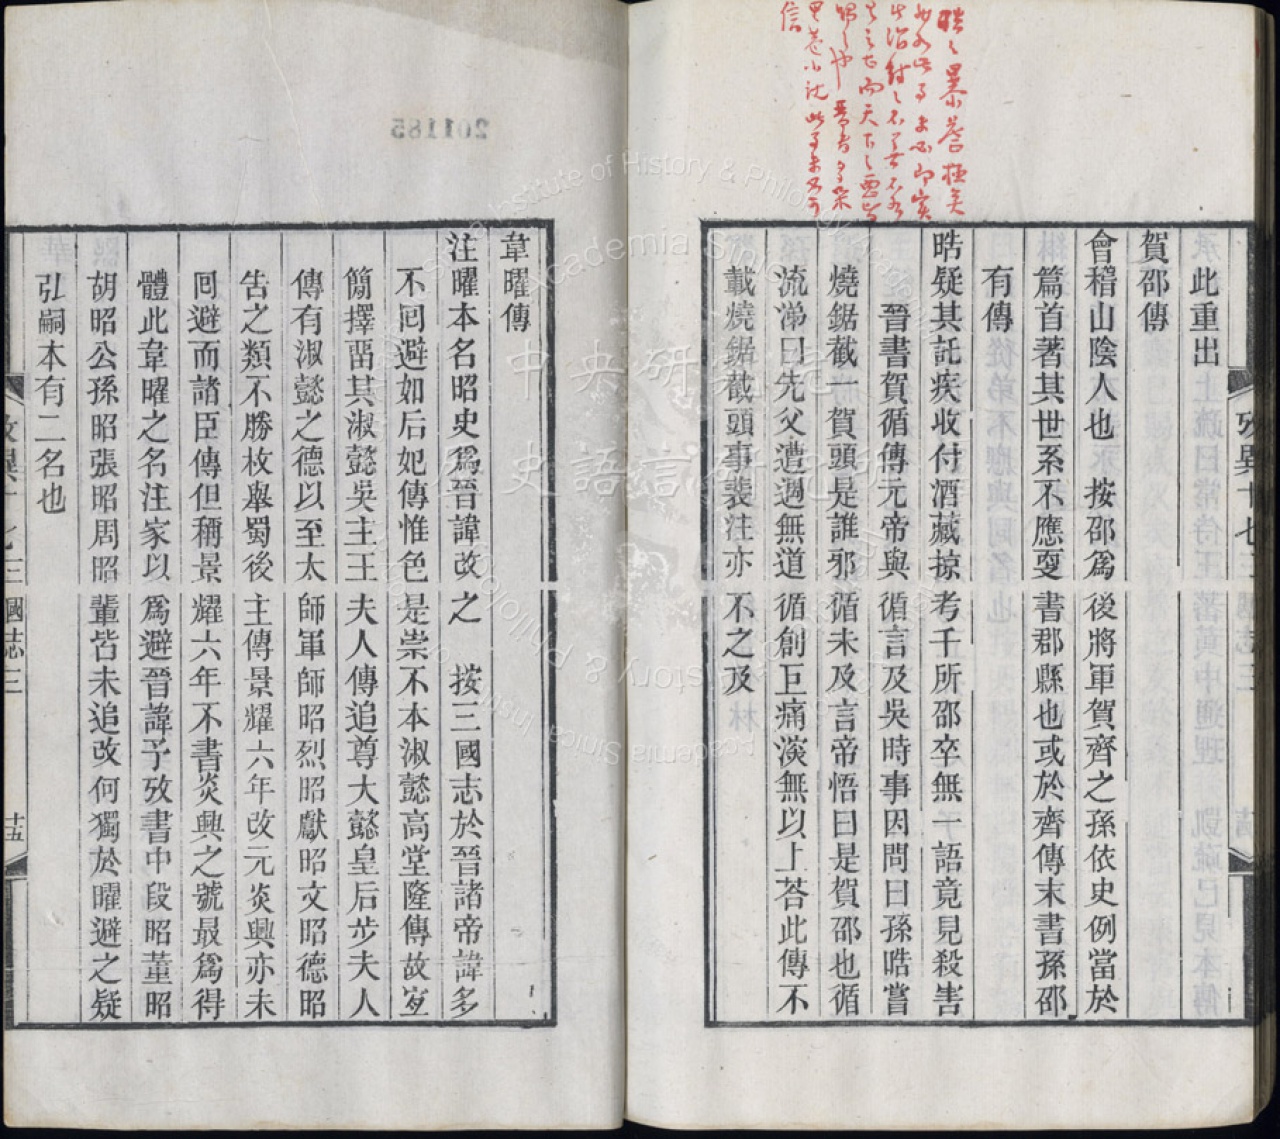 此重出
賀邵傳
會稽山陰人也　按邵爲後將軍賀齊之孫依史例當於
篇首著其世系不應叓書郡縣也或於齊傳末書孫邵
有傳
晧疑其託疾收付酒藏掠考千所邵卒無一語竟見殺害
晉書賀循傳元帝與循言及吳時事因問曰孫晧嘗
燒鋸截一賀頭是誰邪循未及言帝悟曰是賀邵也循
流涕曰先父遭遇無道循創巨痛深無以上荅此傳不
載燒鋸截頭事裴注亦不之及
韋曜傳
注曜本名昭史爲晉諱改之　按三國志於晉諸帝諱多
不回避如后妃傳惟色是崇不本淑懿高堂隆傳故宜
簡擇畱其淑懿吳主王夫人傳追尊大懿皇后步夫人
傳有淑懿之德以至太師軍師昭烈昭獻昭文昭德昭
告之類不勝枚舉蜀後主傳景耀六年改元炎興亦未
回避而諸臣傳但稱景耀六年不書炎興之號最爲得
體此韋曜之名注家以爲避晉諱予攷書中段昭董昭
胡昭公孫昭張昭周昭輩皆未追改何獨於曜避之疑
弘嗣本有二名也
攷異十七 三國志三
十五
201185
中央研究院
歷史語言研究所
Institute of History & Philology
Academia Sinica